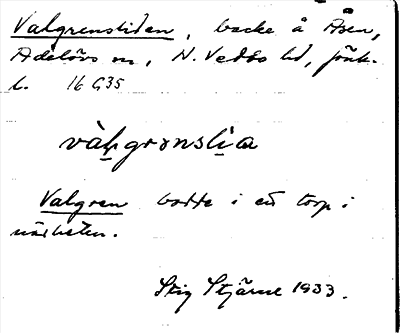 Valgrensliden, backe å Åsen,
Adelövs sn, N. Vedbo hd, Jönk.
l. 16 G35
vàl̥grənsli̠a
Valgren bodde i ett torp i
närheten.
Stig Stjärne 1933.